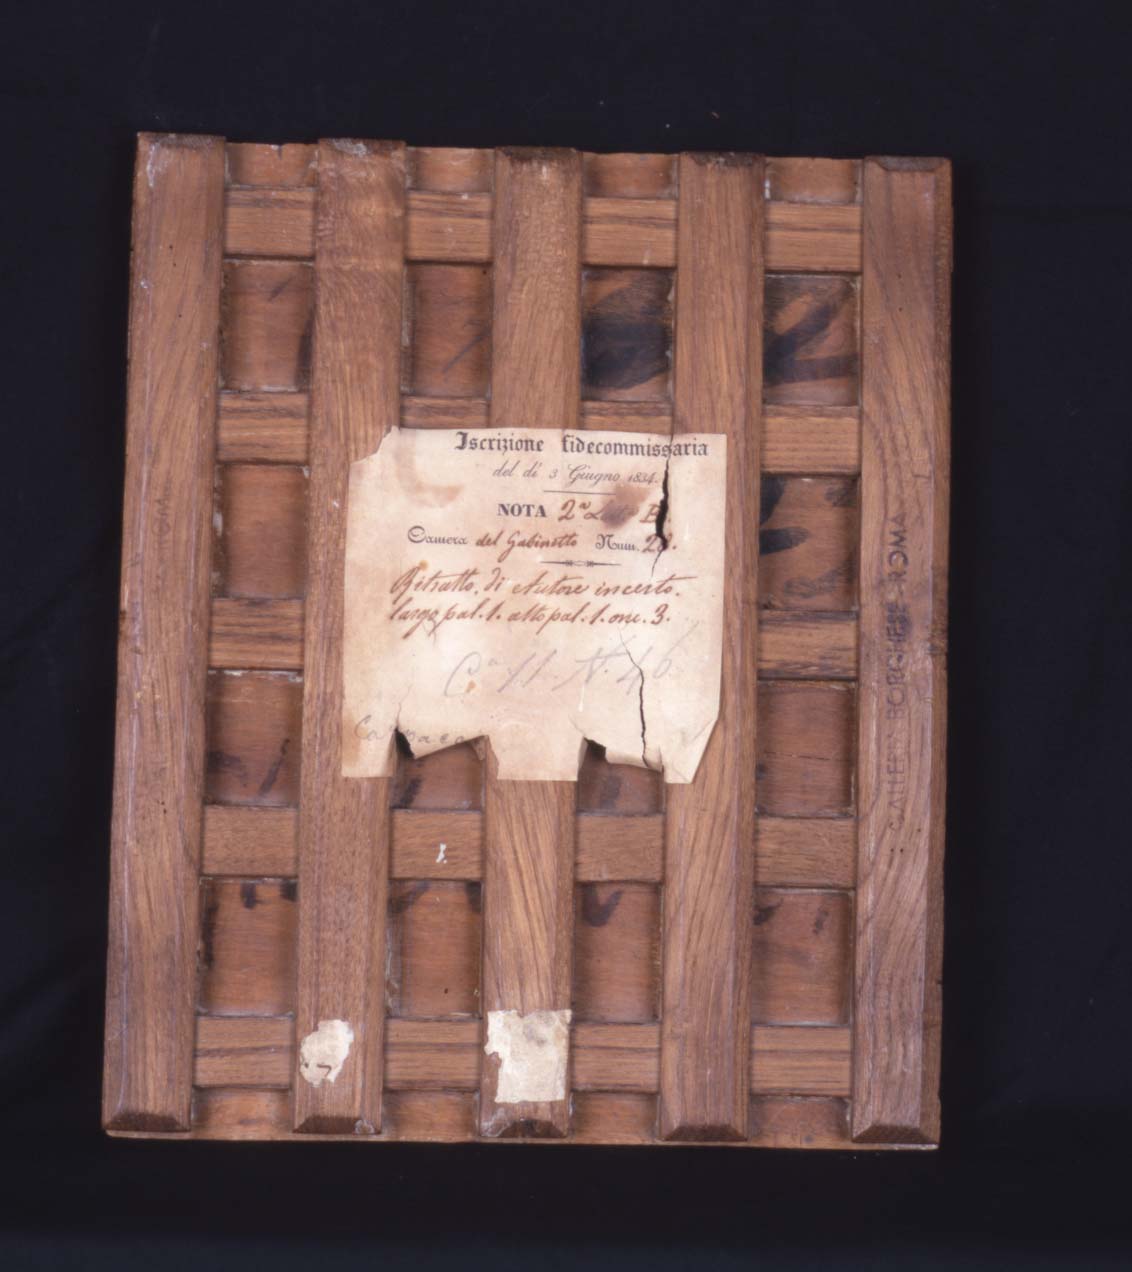 Iscrizione fidecommissaria
del di 3 Giugno 1834.
NOTA 2ª B.
Camera del Gabinetto Num. 28.
Ritratto, di Autore incerto.
largo pal. 1. alto pal. 1. onc. 3.
Cª 11. N. 46
GALLERIA BORGHESE-ROMA